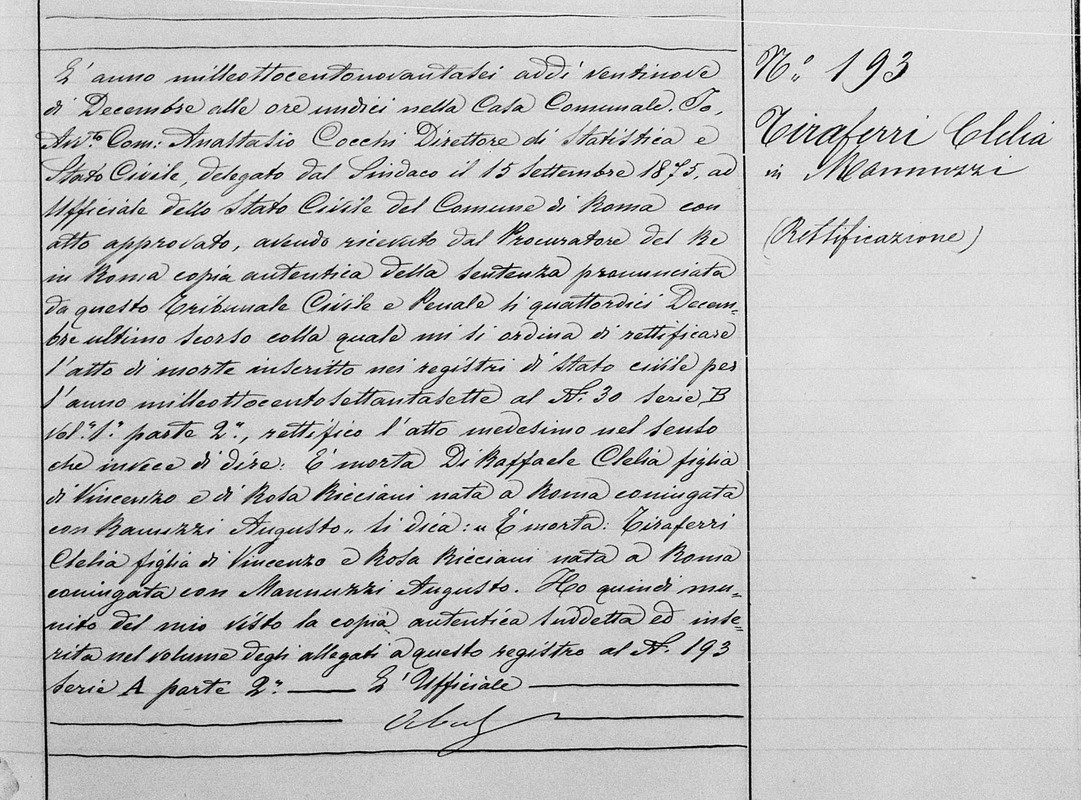 L'anno milleottocentonovantasei addì ventinove
di Decembre alle ore undici nella Casa Comunale. Io,
Com: Anastasio Cocchi Direttore di Statistica e
Stato Civile, delegato dal Sindaco il 15 settembre 1875, ad
Ufficiale dello Stato Civile del Comune di Roma con
atto approvato, avendo ricevuto dal Procuratore del Re
in Roma copia autentica della sentenza pronunciata
da questo Tribunale Civile e Penale li quattordici Decem=
bre ultimo scorso colla quale mi si ordina di rettificare
l'atto di morte inscritto nei registri di stato civile per
l'anno milleottocentosettantasette al N.º 30 serie B
vol.º 1.º parte 2.ª, rettifico l'atto medesimo nel senso
che invece di dire: E' morta Di Raffaele Clelia figlia
di Vincenzo e di Rosa Ricciani nata a Roma coniugata
con Ranuzzi Augusto" si dica: " E' morta: Tiraferri
Clelia figlia di Vincenzo e Rosa Ricciani nata a Roma
coniugata con Mannuzzi Augusto. Ho quindi mu=
nito del mio visto la copia autentica suddetta ed inse=
rita nel volume degli allegati a questo registro al N.º 193
serie A parte 2.ª — L'Ufficiale —
N.º 193
Tiraferri Clelia
in Mannuzzi
(Rettificazione)